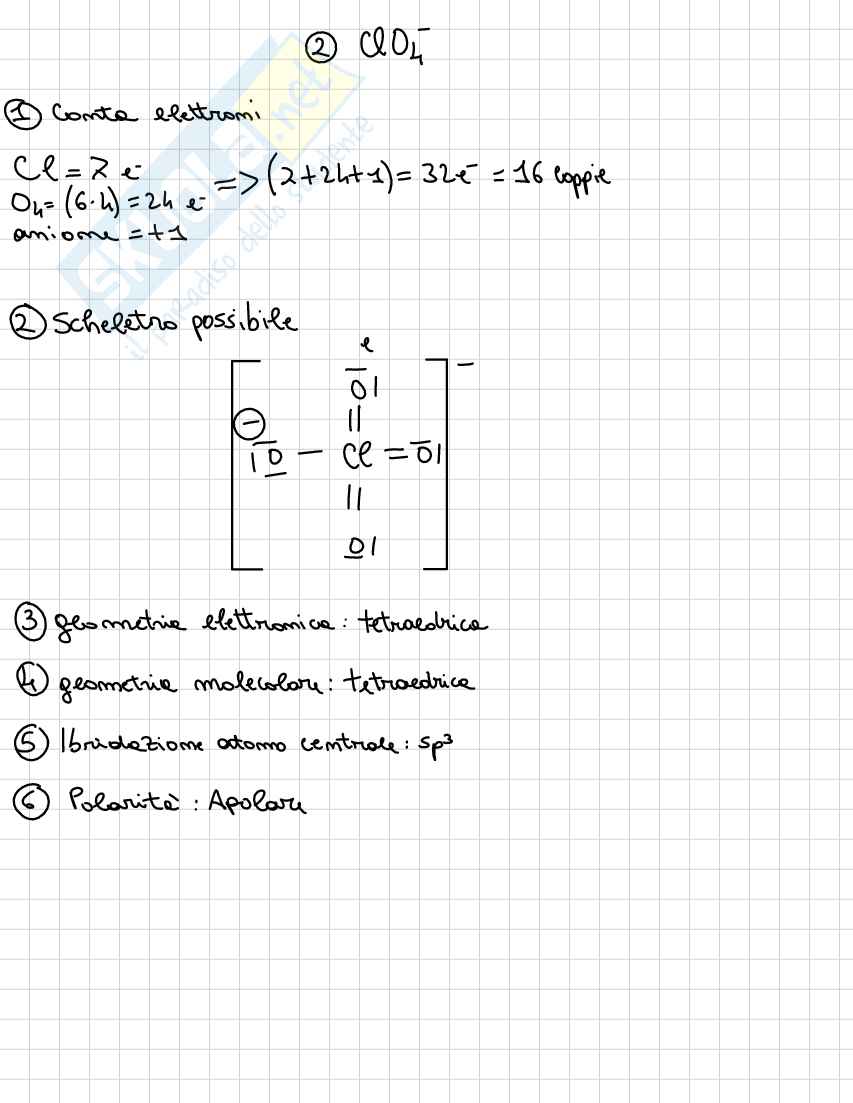 ② ClO₄⁻
① Conta elettroni
Cl = 7 e⁻
O₄ = (6·4) = 24 e⁻ => (7+24+1) = 32e⁻ = 16 coppie
anione = +1
② Scheletro possibile
e
O|
⊖ ||
|O — Cl = O|
||
O|
−
③ geometria elettronica: tetraedrica
④ geometria molecolare: tetraedrica
⑤ Ibridazione atomo centrale: sp³
⑥ Polarità: Apolare
SKUOLA.net
il paradiso dello studente